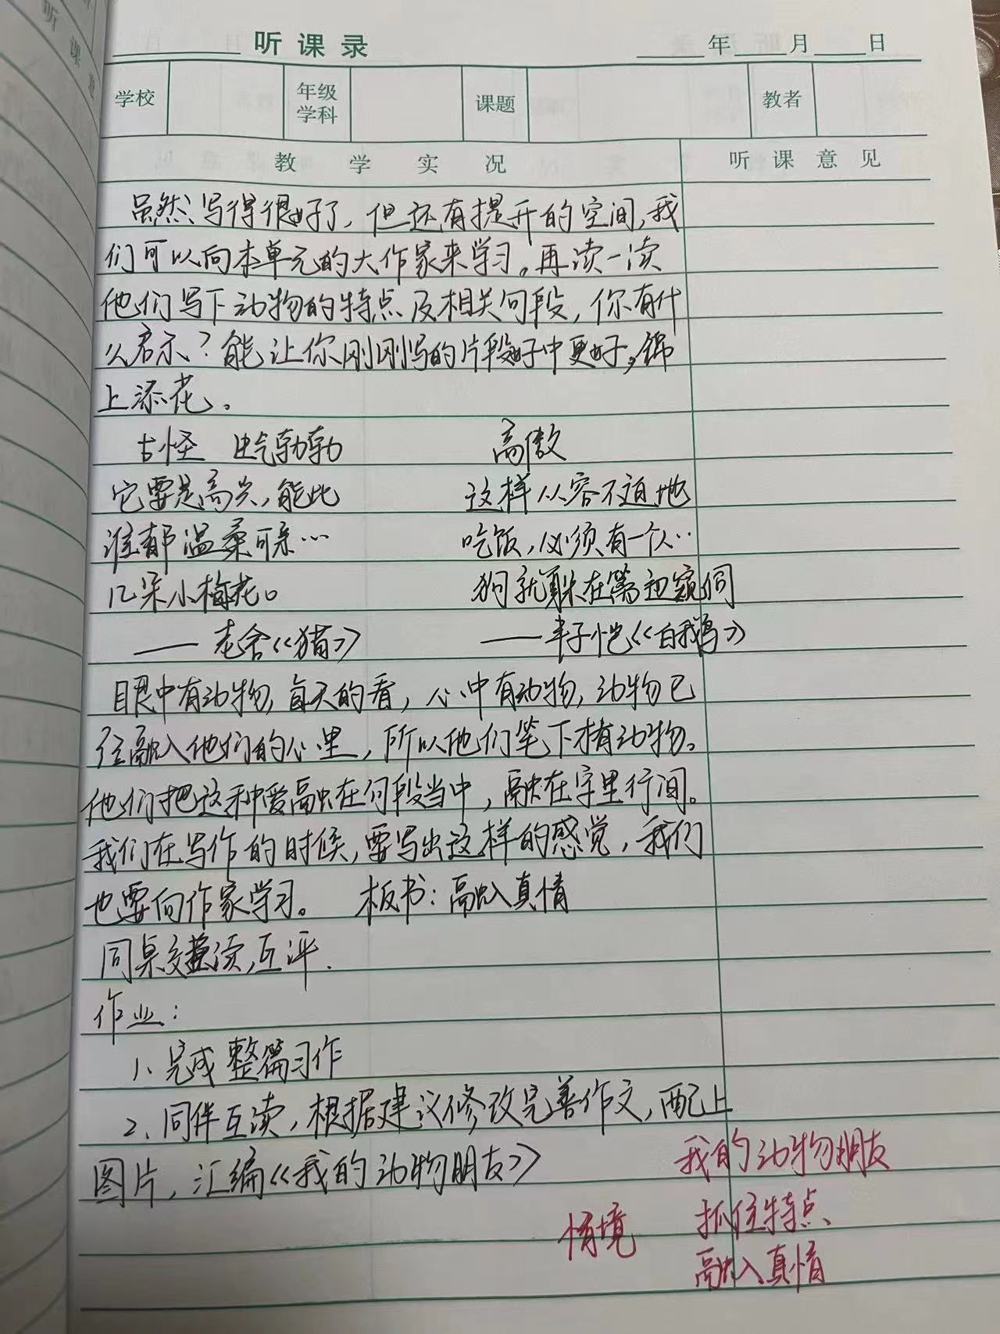 听课录
年 月 日
学校 年级学科 课题 教者
教学实况 听课意见
虽然写得很好了，但还有提升的空间，我
们可以向本单元的大作家来学习。再读一读
他们写下动物的特点及相关句段，你有什
么启示？能让你刚刚写的片段好中更好，锦
上添花。
古怪 生气勃勃 高傲
它要是高兴，能比 这样从容不迫地
谁都温柔可亲… 吃饭，必须有一个人…
几朵小梅花。 狗就躲在篱边窥伺
——老舍《猫》 ——丰子恺《白鹅》
眼中有动物，每天的看，心中有动物，动物已
经融入他们的心里，所以他们笔下有动物。
他们把这种爱融在句段当中，融在字里行间。
我们在写作的时候，要写出这样的感觉，我们
也要向作家学习。 板书：融入真情
同桌交换读，互评.
作业：
1、完成整篇习作
2、同伴互读，根据建议修改完善作文，配上
图片，汇编《我的动物朋友》
我的动物朋友
情境 抓住特点
融入真情